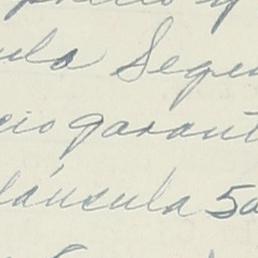 ula Segu
cio garant
láusula 5a